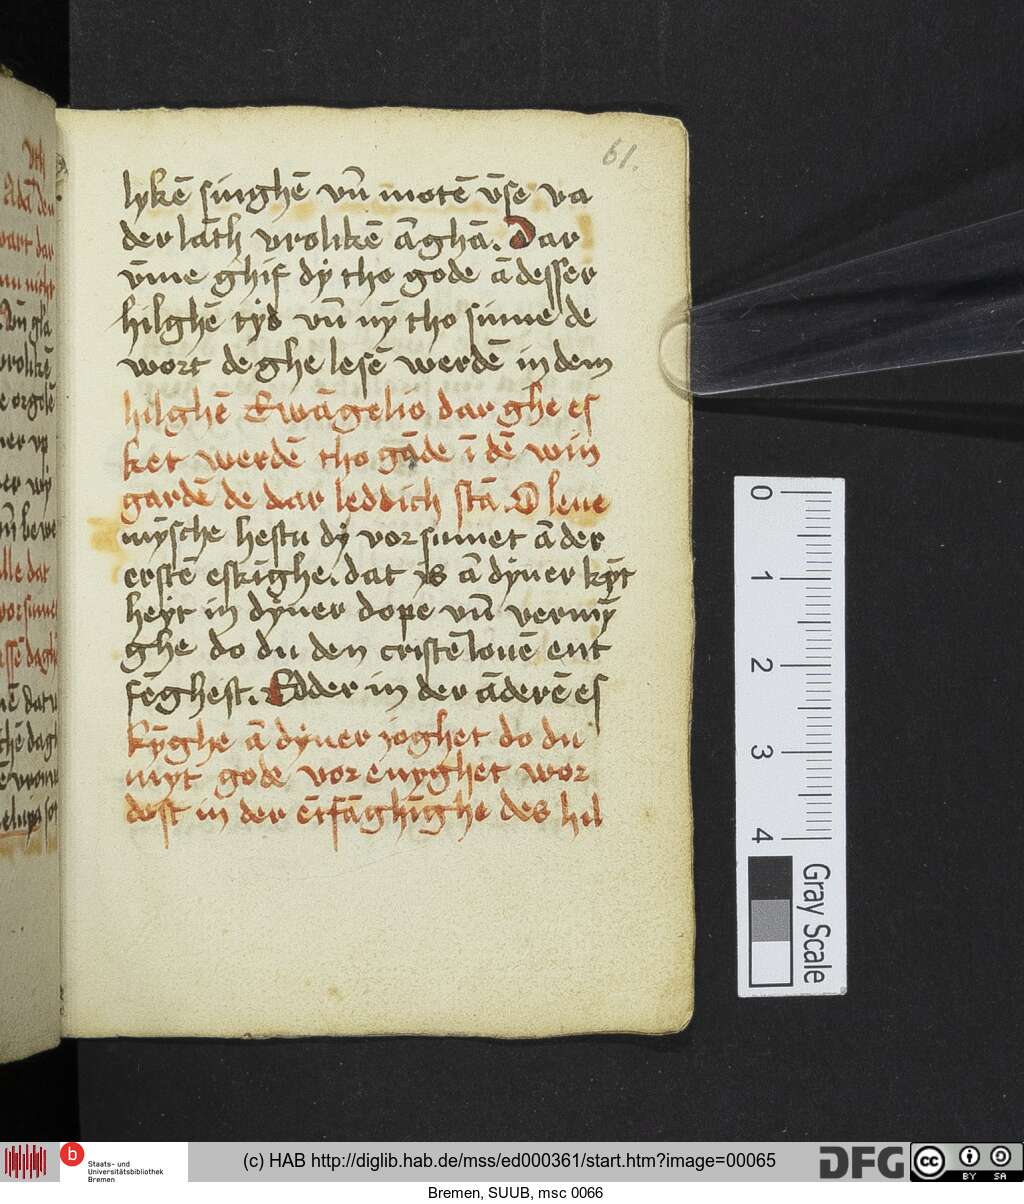 61.
lykē singhē vn̄ motē v̄se va
der lāth vrolikē āghā. Dar
v̄me ghif dy tho gode ā desser
hilghē tyd vn̄ nȳ tho sinne de
wort de ghe lesē werdē in dem
hilghē Ewāgelio dar ghe es
ket werdē tho gāde ī dē win
gardē de dar leddich stā. O leue
mȳsche hestu dy vorsumet ā der
erstē eskīghe. dat ys ā dyner kȳt
heyt in dyner dope vn̄ vermȳ
ghe do du den cristē louē ent
fēghest. Edder in der āderē es
kȳghe ā dyner ioghet do du
myt gode vorenyghet wor
dest in der ētfāghīghe des hil
Gray Scale
0
1
2
3
4
Staats- und
Universitätsbibliothek
Bremen
(c) HAB http://diglib.hab.de/mss/ed000361/start.htm?image=00065
DFG
cc
BY SA
Bremen, SUUB, msc 0066